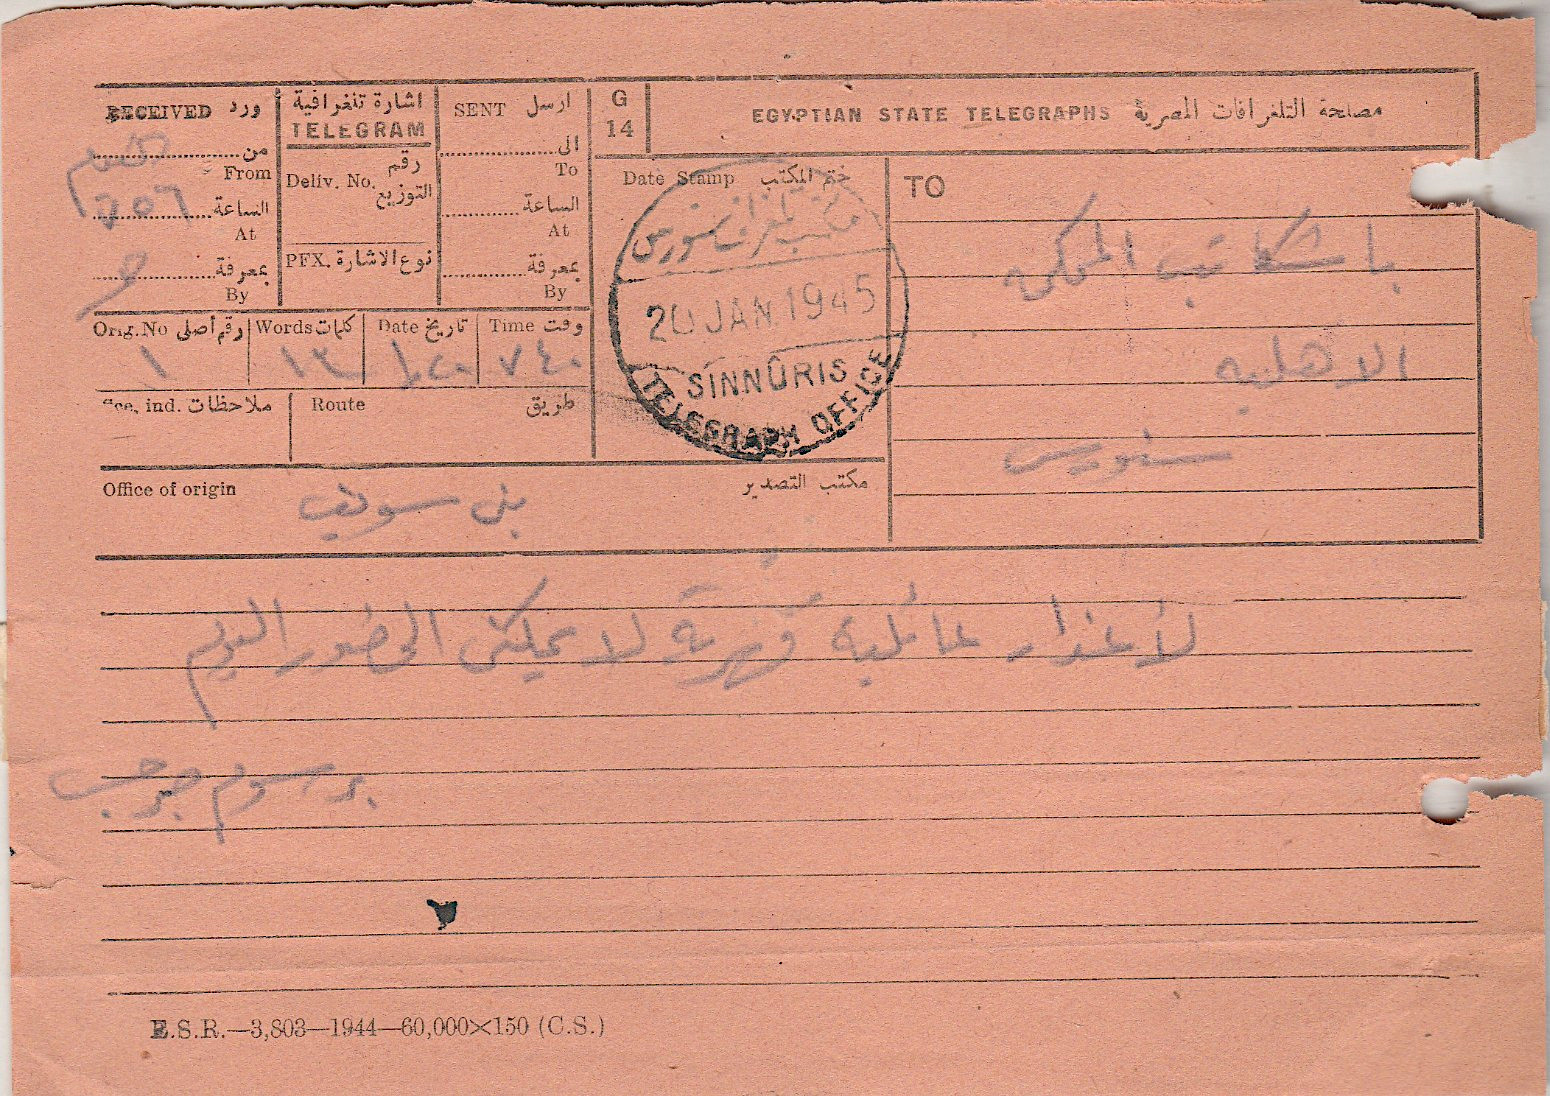 RECEIVED ورد
اشارة تلغرافية
TELEGRAM
SENT ارسل
G
14
EGYPTIAN STATE TELEGRAPHS مصلحة التلغرافات المصرية
من
From
الساعة
At
بمعرفة
By
Deliv. No. رقم التوزيع
PFX. نوع الاشارة
الى
To
الساعة
At
بمعرفة
By
Date Stamp ختم المكتب
مكتب تلغراف سنورس
20 JAN 1945
SINNÛRIS
TELEGRAPH OFFICE
TO
باشكاتب المحكمة
الاهلية
سنورس
Orig. No رقم أصلى
Words كلمات
Date تاريخ
Time وقت
١
١٣
٢٠
٧٤٠
ind. ملاحظات
Route طريق
Office of origin بنى سويف مكتب التصدير
لأعذار عائلية قهرية لا يمكنى الحضور اليوم
برسوم جرجس
E.S.R.—3,803—1944—60,000×150 (C.S.)